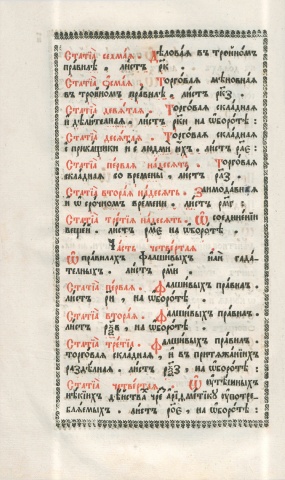 Статїѧ̀ седмаѧ . Дѣловаѧ въ тройномъ
правилѣ . листъ рк҃ .
Статїѧ̀ ѻсмаѧ . Торговаѧ мѣновнаѧ
въ тройномъ правилѣ . листъ рк҃з .
Статїѧ̀ девѧтаѧ . Торговаѧ складнаѧ
и дѣлителнаѧ . листъ рк҃и на ѡборотѣ :
Статїѧ̀ десѧтаѧ . Торговаѧ складнаѧ
с прикащики и с людми ихъ . листъ
Статїѧ̀ перваѧ надесѧть . Торговаѧ
складнаѧ со времены . листъ
Статїѧ̀ втораѧ надесѧть . Заимодавнаѧ
и ѡ срочномъ времени . листъ рм҃г :
Статїѧ̀ третїѧѧ надесѧть . Ѡ соединенїи
вещей . листъ рм҃е на ѡборотѣ .
Часть четвертаѧ
Ѡ правилахъ фалшивыхъ или гада-
телныхъ . листъ рм҃и .
Статїѧ̀ перваѧ . Фалшивыхъ правила .
листъ на ѡборотѣ .
Статїѧ̀ втораѧ . Фалшивыхъ правила .
листъ рн҃в , на ѡборотѣ .
Статїѧ̀ третїѧ . Фалшивыхъ правилъ .
торговаѧ складнаѧ , и въ притѧжанїихъ
раздѣлнаѧ . листъ рн҃з , на ѡборотѣ :
Статїѧ̀ четвертаѧ . Ѡ
дѣйства чре ариѳметїку ѹпотреб-
лѧемыхъ . листъ на ѡборотѣ :